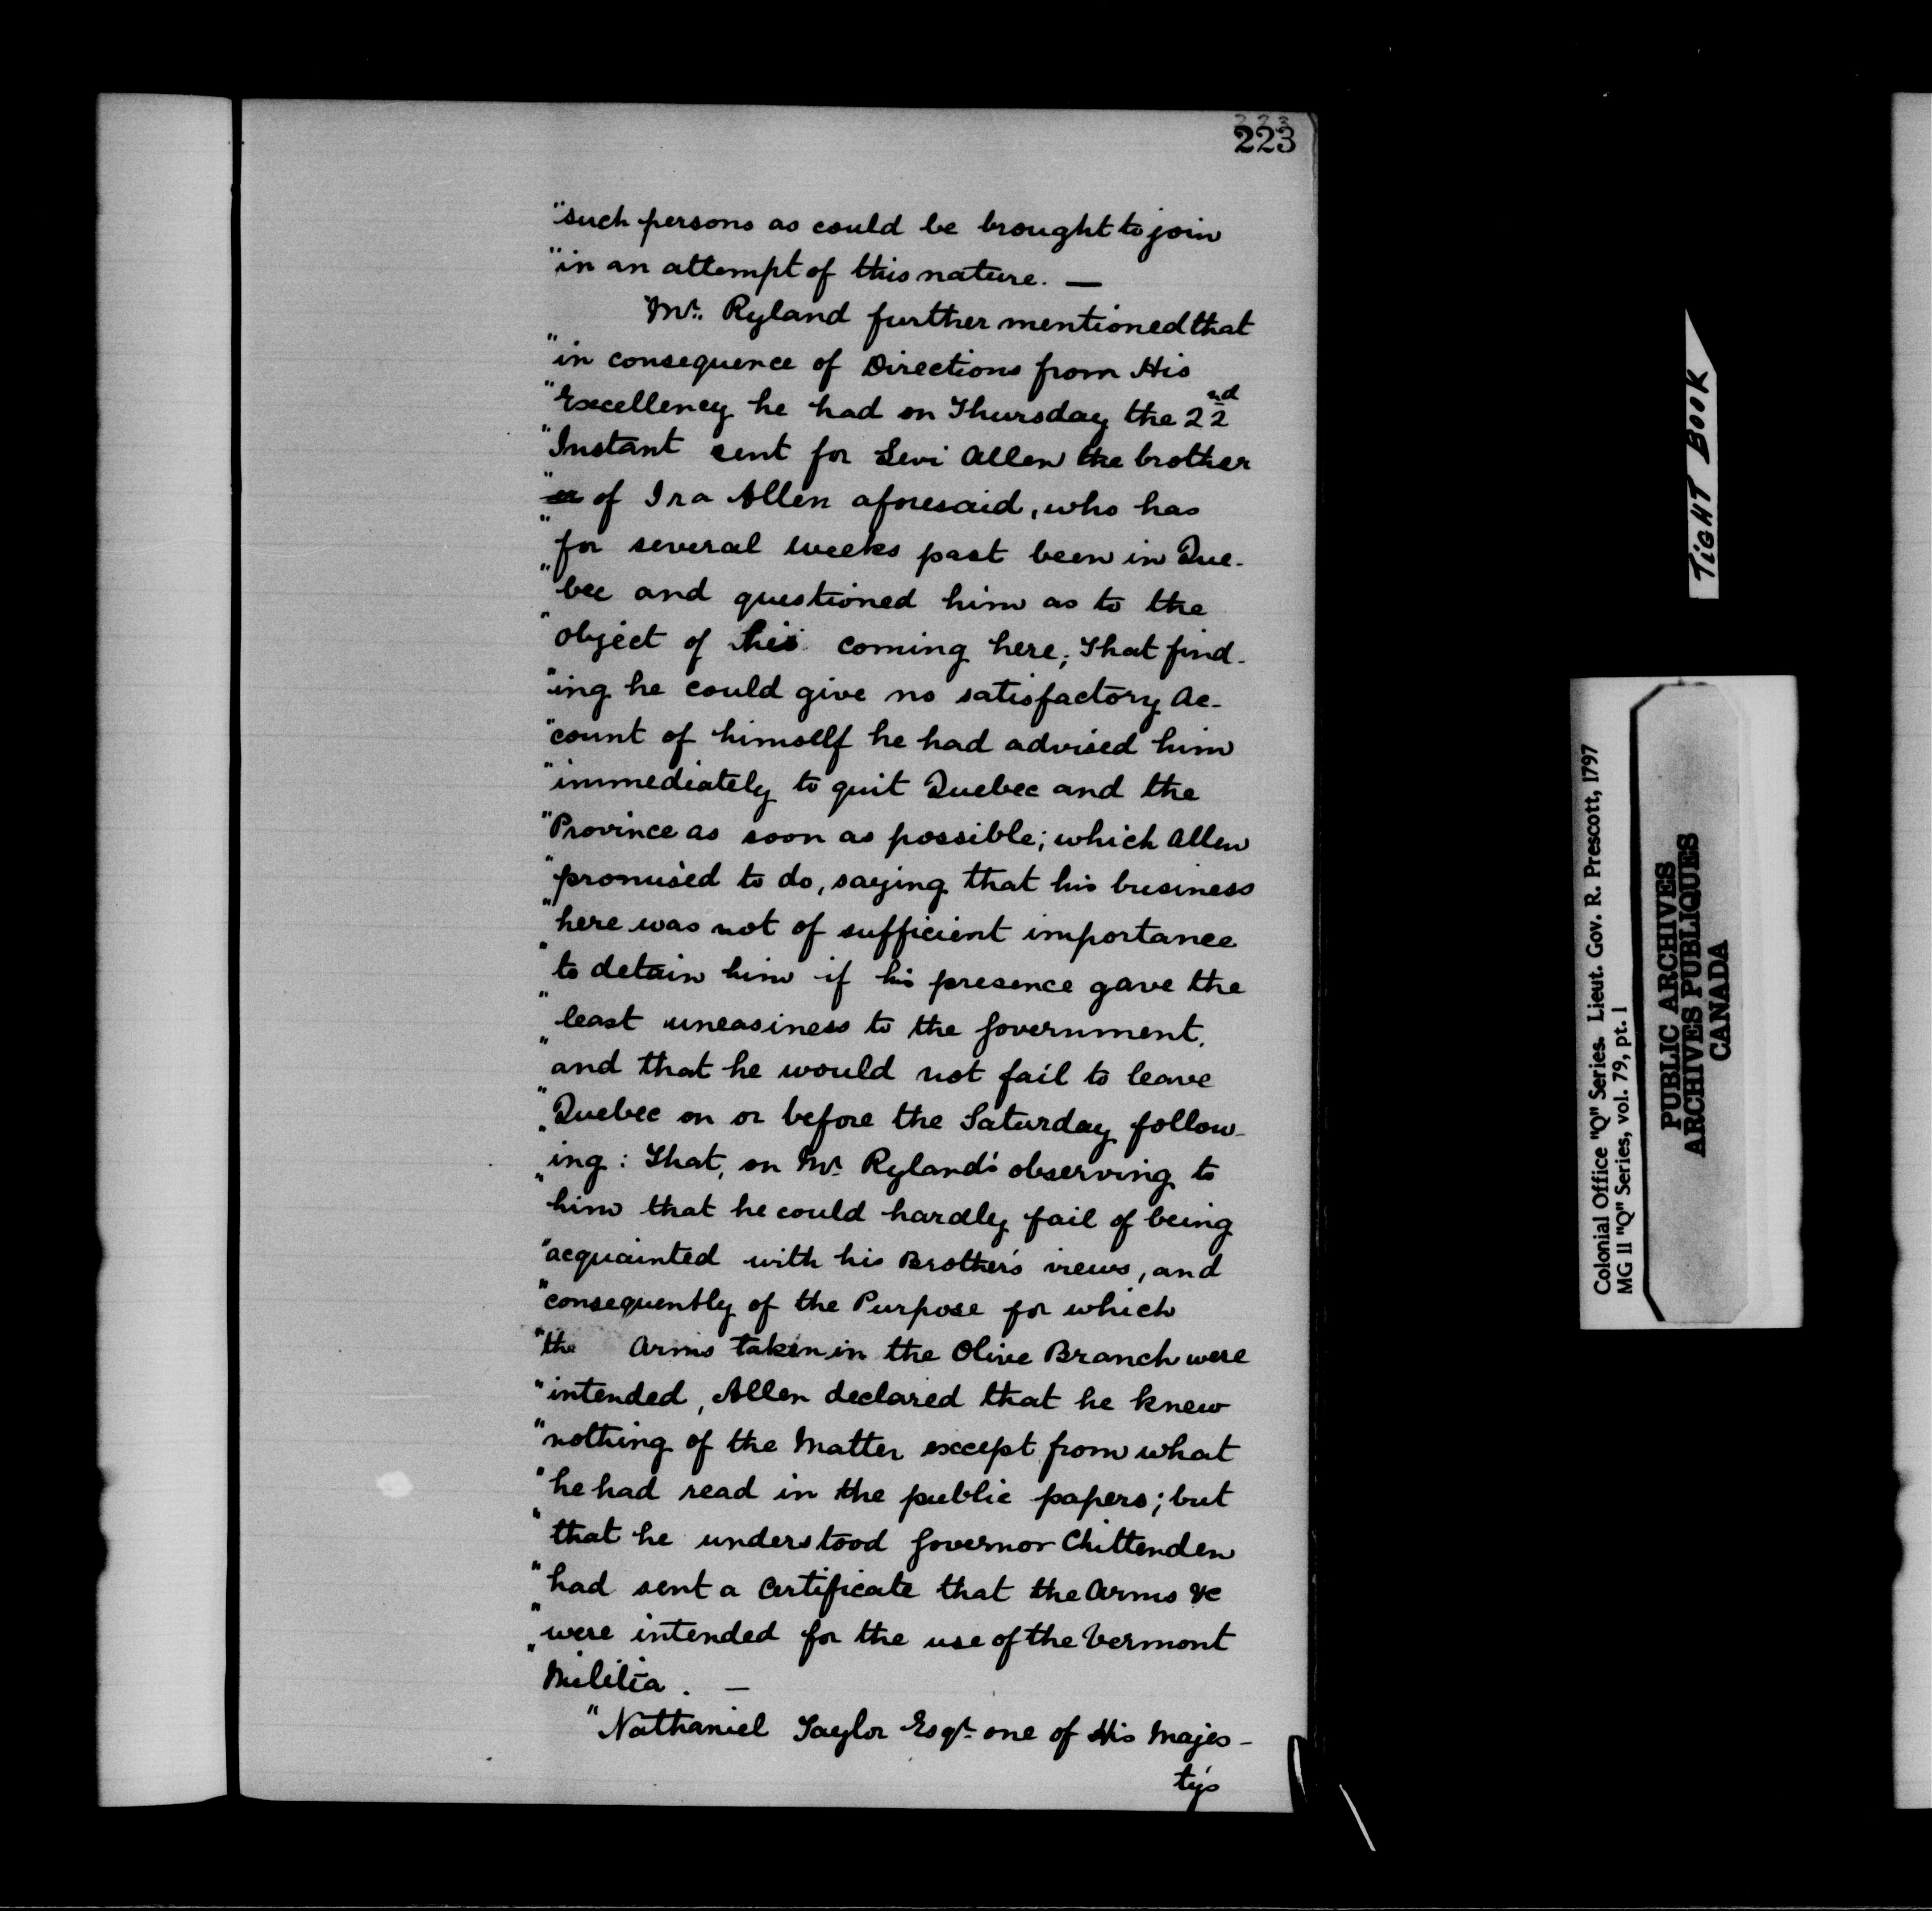 223
223
"such persons as could be brought to join
"in an attempt of this nature. —
"Mr. Ryland further mentioned that
"in consequence of Directions from His
"Excellency he had on Thursday the 22nd
"Instant sent for Levi Allen the brother
" of Ira Allen aforesaid, who has
"for several weeks past been in Que-
"bec and questioned him as to the
"object of his coming here; That find-
"ing he could give no satisfactory Ac-
"count of himself he had advised him
"immediately to quit Quebec and the
"Province as soon as possible; which Allen
"promised to do, saying that his business
"here was not of sufficient importance
"to detain him if his presence gave the
"least uneasiness to the Government,
"and that he would not fail to leave
"Quebec on or before the Saturday follow-
"ing: That, on Mr Ryland's observing to
"him that he could hardly fail of being
"acquainted with his Brother's views, and
"consequently of the Purpose for which
"the Arms taken in the Olive Branch were
"intended, Allen declared that he knew
"nothing of the Matter except from what
"he had read in the public papers; but
"that he understood Governor Chittenden
"had sent a Certificate that the Arms &c
"were intended for the use of the Vermont
"Militia. —
"Nathaniel Taylor Esqr. one of His Majes-
ty's
TIGHT BOOK
Colonial Office "Q" Series. Lieut. Gov. R. Prescott, 1797
MG 11 "Q" Series, vol. 79, pt. 1
PUBLIC ARCHIVES
ARCHIVES PUBLIQUES
CANADA